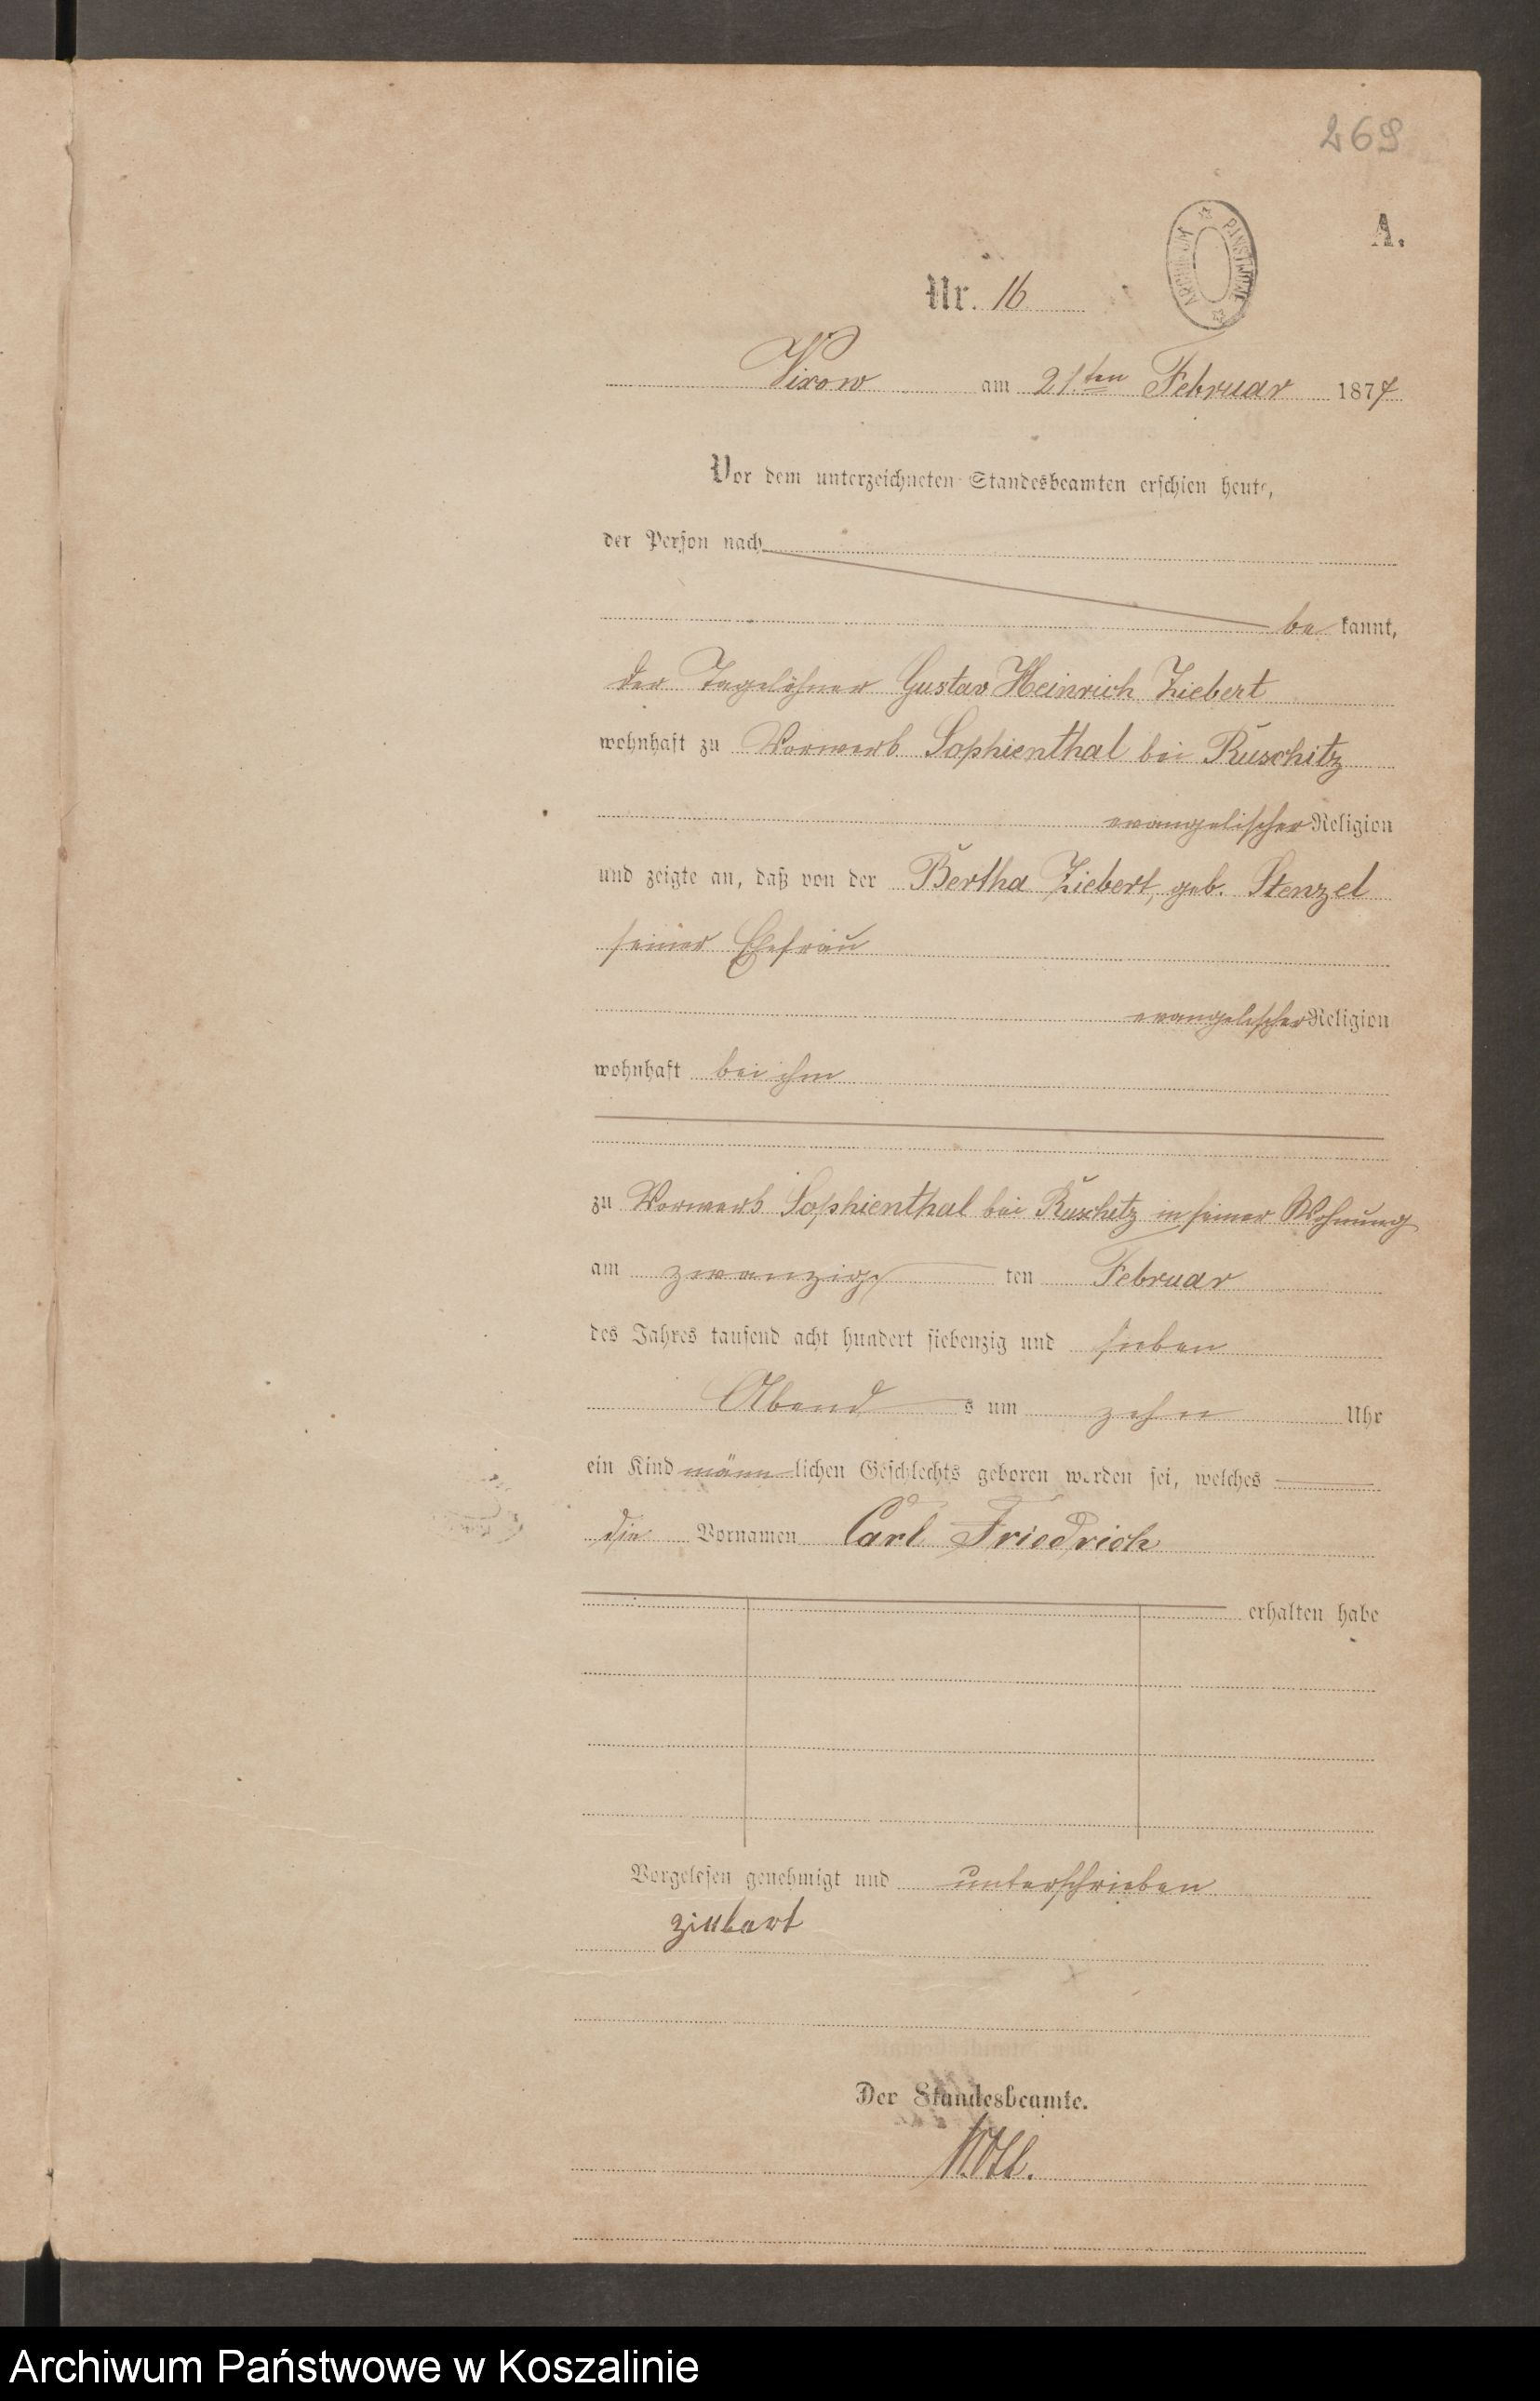 269
A.
ARCHIWUM PAŃSTWOWE
Nr. 16
Vixow am 21ten Februar 1877
Vor dem unterzeichneten Standesbeamten erschien heute,
der Person nach
be kannt,
der Tagelöhner Gustav Heinrich Ziebert
wohnhaft zu Vorwerk Sophienthal bei Ruschitz
evangelischer Religion
und zeigte an, daß von der Bertha Ziebert, geb. Stenzel
seiner Ehefrau
evangelischer Religion
wohnhaft bei ihm
zu Vorwerk Sophienthal bei Ruschitz in seiner Wohnung
am zwanzig ten Februar
des Jahres tausend acht hundert siebenzig und sieben
Abend s um zehn Uhr
ein Kind männ lichen Geschlechts geboren worden sei, welches
die Vornamen Carl Friedrich
erhalten habe
Vorgelesen genehmigt und unterschrieben
Der Standesbeamte.
Archiwum Państwowe w Koszalinie